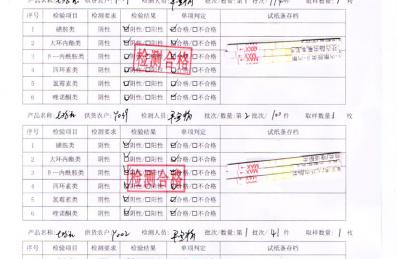 序号 检验项目 检测要求 检验结果 单项判定 试纸条存档
1 磺胺类 阴性 ☑阴性/□阳性 ☑合格/□不合格
2 大环内酯类 阴性 ☑阴性/□阳性 ☑合格/□不合格
3 β-内酰胺类 阴性 ☑阴性/□阳性 ☑合格/□不合格
4 四环素类 阴性 ☑阴性/□阳性 ☑合格/□不合格
5 氯霉素类 阴性 ☑阴性/□阳性 ☑合格/□不合格
6 喹诺酮类 阴性 ☑阴性/□阳性 ☑合格/□不合格
检测合格
产品名称: 供货农户: 检测人员: 批次/数量:第2批次/ 件 取样数量1枚
序号 检验项目 检测要求 检验结果 单项判定 试纸条存档
1 磺胺类 阴性 ☑阴性/□阳性 ☑合格/□不合格
2 大环内酯类 阴性 ☑阴性/□阳性 ☑合格/□不合格
3 β-内酰胺类 阴性 ☑阴性/□阳性 ☑合格/□不合格
4 四环素类 阴性 ☑阴性/□阳性 ☑合格/□不合格
5 氯霉素类 阴性 ☑阴性/□阳性 ☑合格/□不合格
6 喹诺酮类 阴性 ☑阴性/□阳性 ☑合格/□不合格
检测合格
产品名称: 供货农户:Y002 检测人员: 批次/数量:第1批次/41件 取样数量:1枚
序号 检验项目 检测要求 检验结果 单项判定 试纸条存档